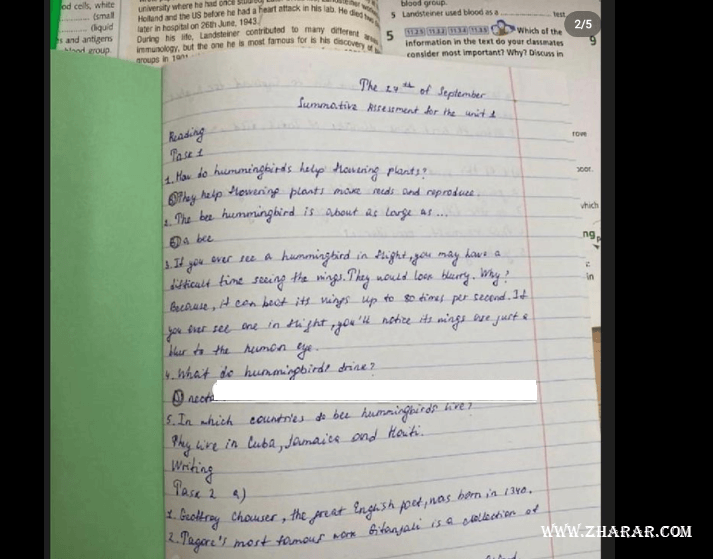 od cells, white
(small
(liquid
s and antigens
blood group.
university where he had once stud
Holland and the US before he had a heart attack in his lab. He died
later in hospital on 26th June, 1943.
During his life, Landsteiner contributed to many different
immunology, but the one he is most famous for is his discovery of
groups in 1901
blood group.
5 Landsteiner used blood as a ............ test.
5 Which of the
information in the text do your classmates
consider most important? Why? Discuss in
2/5
9
The 27th of September
Summative Assessment for the unit 1
Reading
Task 1
1. How do hummingbirds help flowering plants?
They help flowering plants make seeds and reproduce.
2. The bee hummingbird is about as large as ...
a bee
3. If you ever see a hummingbird in flight, you may have a
difficult time seeing the wings. They would look blurry. Why?
Because, it can beat its wings up to 80 times per second. If
you ever see one in flight, you'll notice its wings are just a
blur to the human eye.
4. What do hummingbirds drink?
necta
5. In which countries do bee hummingbirds live?
They live in Cuba, Jamaica and Haiti.
Writing
Task 2 a)
1. Geoffrey Chauser, the great English poet, was born in 1340.
2. Tagore's most famous work Gitanjali is a collection of
rove
hich
ng
in
WWW.ZHARAR.COM